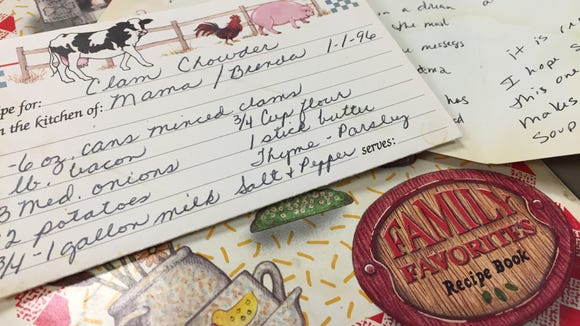 pe for: Clam Chowder
n the kitchen of: Mama / Brenda 1-1-96
-6 oz. cans minced clams 3/4 Cup flour
lb. bacon 1 stick butter
3 med. onions Thyme - Parsley
2 potatoes Salt & Pepper serves:
3/4 - 1 gallon milk
a dream
the
messess
has
it is
I hope
this one
makes
soup
FAMILY
FAVORITES
Recipe Book